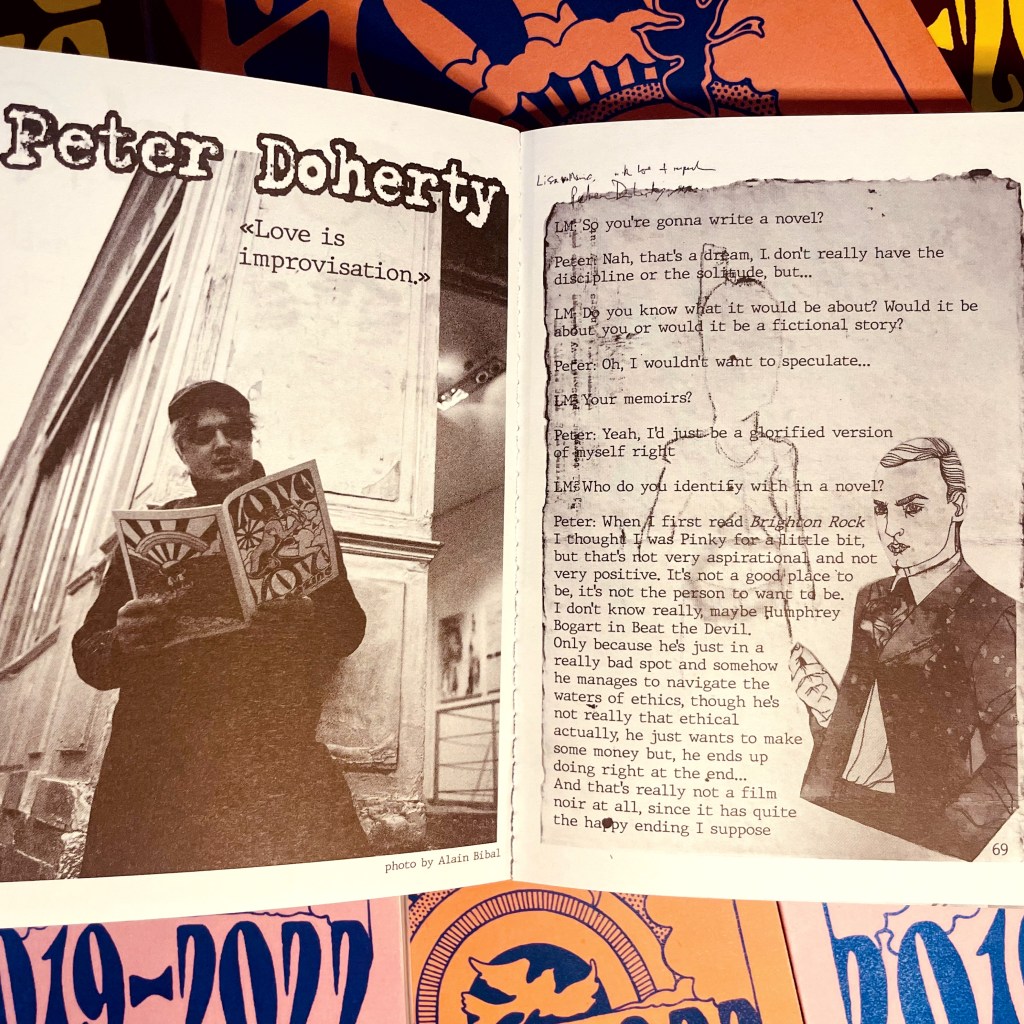 Peter Doherty
«Love is
improvisation.»
LOVE
LOVE
photo by Alain Bibal
LM: So you're gonna write a novel?
Peter: Nah, that's a dream, I don't really have the
discipline or the solitude, but...
LM: Do you know what it would be about? Would it be
about you or would it be a fictional story?
Peter: Oh, I wouldn't want to speculate...
LM: Your memoirs?
Peter: Yeah, I'd just be a glorified version
of myself right
LM: Who do you identify with in a novel?
Peter: When I first read Brighton Rock
I thought I was Pinky for a little bit,
but that's not very aspirational and not
very positive. It's not a good place to
be, it's not the person to want to be.
I don't know really, maybe Humphrey
Bogart in Beat the Devil.
Only because he's just in a
really bad spot and somehow
he manages to navigate the
waters of ethics, though he's
not really that ethical
actually, he just wants to make
some money but, he ends up
doing right at the end...
And that's really not a film
noir at all, since it has quite
the happy ending I suppose
69
019-2022